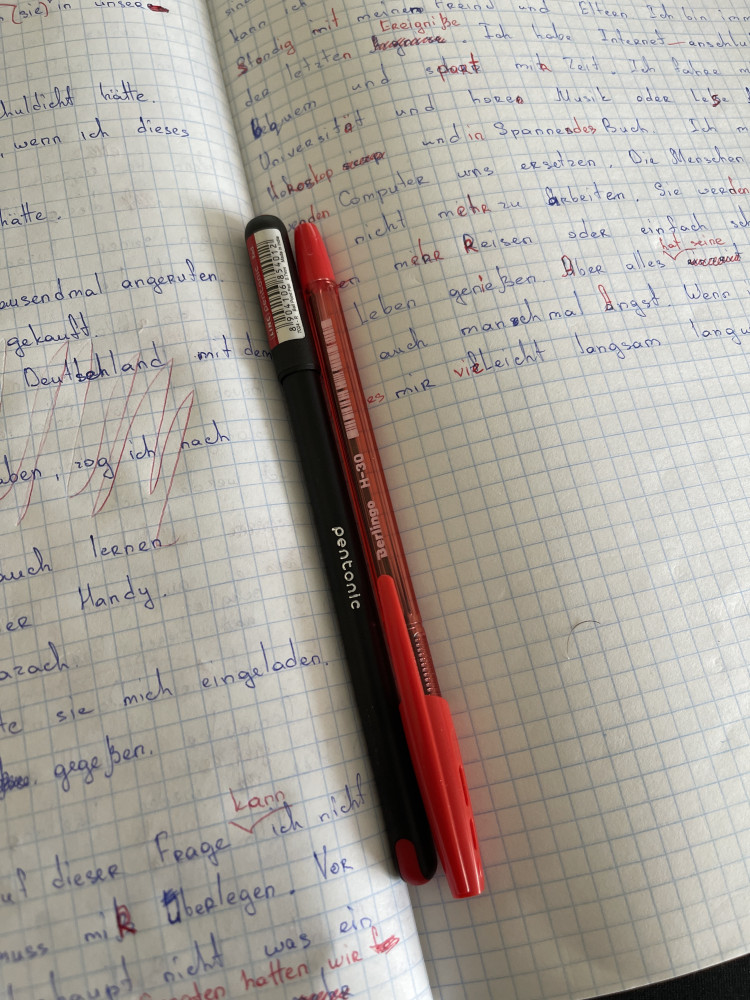 (sie) in unsere
huldicht hätte.
, wenn ich dieses
hätte.
ausendmal angerufen.
gekauft.
Deutschland mit dem
aben, zog ich nach
auch lernen
er Handy.
azach.
te sie mich eingeladen.
gegeßen.
kann
uf dieser Frage ich nicht
muss mir überlegen. Vor
haupt nicht was ein
nden hatten, wie
kann ich
Ständig mit meinem Freind und Eltern. Ich bin im
Ereigniße
der letzten Ich habe Internet-anschlu
Bequem und spart mit Zeit. Ich fahre
Universität und hore Musik oder lese
Horoskop und in Spannendes Buch. Ich
Computer uns ersetzen. Die Menschen
enden nicht mehr zu arbeiten. Sie werden
en mehr Reisen oder einfach
hat seine
Leben genießen. Aber alles
auch manschmal Angst. Wenn
es mir vielleicht langsam langw
8904106854012
Berlingo H-30
pentonic